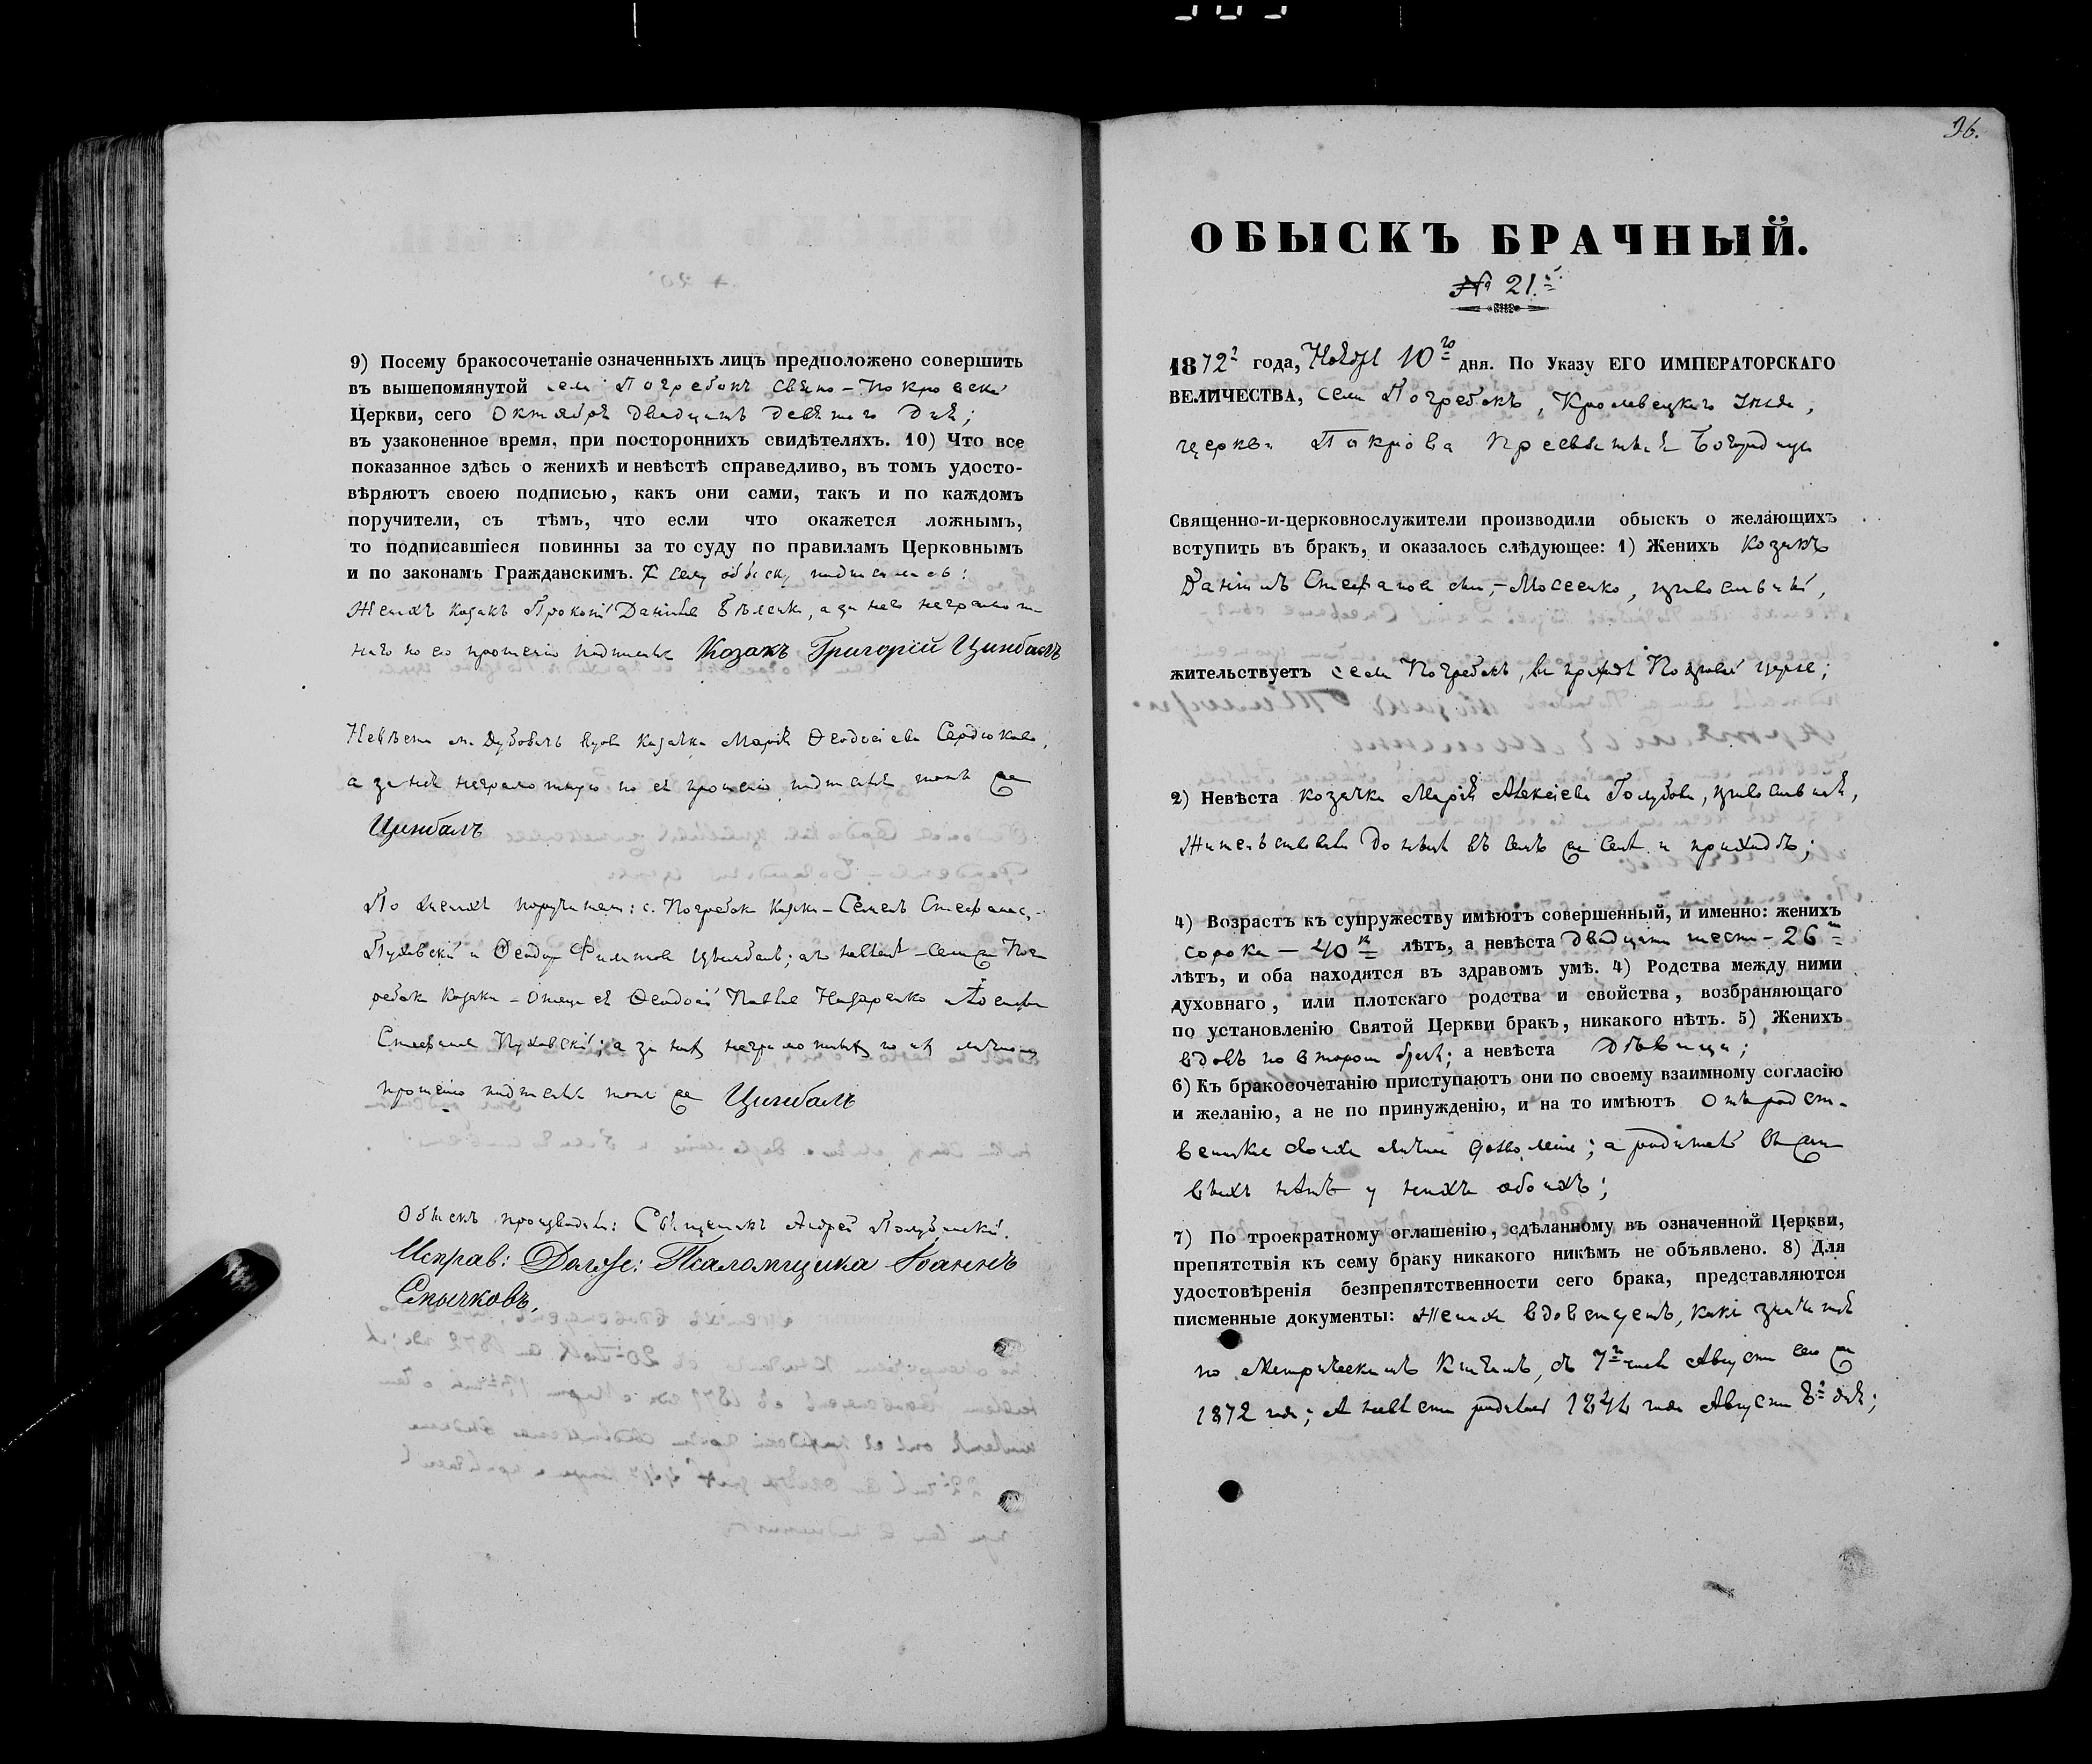 9) Посему бракосочетаніе означенныхъ лицъ предположено совершить
въ вышепомянутой села Погребокъ Свято-Покровской
Церкви, сего Октября двадцать девятаго дня;
въ узаконенное время, при постороннихъ свидѣтеляхъ. 10) Что все
показанное здѣсь о женихѣ и невѣстѣ справедливо, въ томъ удосто-
вѣряютъ своею подписью, какъ они сами, такъ и по каждомъ
поручители, съ тѣмъ, что если что окажется ложнымъ,
то подписавшіеся повинны за то суду по правиламъ Церковнымъ
и по законамъ Гражданскимъ. К сему обыску подписались:
Женихъ козакъ Прокопій Даніилов, а за него неграмот-
наго по его прошенію подписался Козакъ Григорій Цинбалъ
Невѣста вдова Козачка Марія Ѳеодосіева Сердюкова,
а за неё неграмотную по её прошенію подписался тотъ же
Цинбалъ
По женихѣ поручители: с. Погребокъ Козаки - Семенъ Стефановъ
Пуховскій и Ѳеодоръ Филиповъ Цинбалъ; а по невѣстѣ - села По-
гребокъ Козаки - отецъ её Ѳеодосій Павловъ Назаренко и
Стефановъ Пуховскій; а за нихъ неграмотныхъ по ихъ личному
прошенію подписался тотъ же Цинбалъ
Обыскъ производили: Священникъ Андрей
Исправ: Должн: Псаломщика Іоаннъ
Смычковъ.
96.
ОБЫСКЪ БРАЧНЫЙ.
№ 21.й
1872г года, Ноября 10го дня. По Указу ЕГО ИМПЕРАТОРСКАГО
ВЕЛИЧЕСТВА, села Погребокъ, Кролевецкаго уѣзда,
церкви Покрова Пресвятыя Богородицы
Священно-и-церковнослужители производили обыскъ о желающихъ
вступить въ бракъ, и оказалось слѣдующее: 1) Женихъ Козакъ
Даніилъ Стефановъ сынъ, - Мосеенко, православный,
жительствуетъ села Погребокъ, въ приходѣ Покровской церкве;
2) Невѣста козачка Марія Алексіева Голубова, православная,
Жительствовала до нынѣ въ семъ же селѣ и приходѣ;
4) Возрастъ къ супружеству имѣютъ совершенный, и именно: женихъ
сорока - 40к лѣтъ, а невѣста двадцати шести - 26ти
лѣтъ, и оба находятся въ здравомъ умѣ. 4) Родства между ними
духовнаго, или плотскаго родства и свойства, возбраняющаго
по установленію Святой Церкви бракъ, никакого нѣтъ. 5) Женихъ
вдовъ по второмъ бракѣ; а невѣста дѣвица;
6) Къ бракосочетанію приступаютъ они по своему взаимному согласію
и желанію, а не по принужденію, и на то имѣютъ отъ родст-
венниковъ своихъ личное дозволеніе; а родителей въ жи-
выхъ нѣтъ у нихъ обоихъ;
7) По троекратному оглашенію, сдѣланному въ означенной Церкви,
препятствія къ сему браку никакого никѣмъ не объявлено. 8) Для
удостовѣренія безпрепятственности сего брака, представляются
писменные документы: Женихъ вдовствуетъ, какъ значится
по Метрическимъ Книгамъ, съ 7го числа Августа сего же
1872 года; а невѣста родилась 1846 года Августа 8го дня;